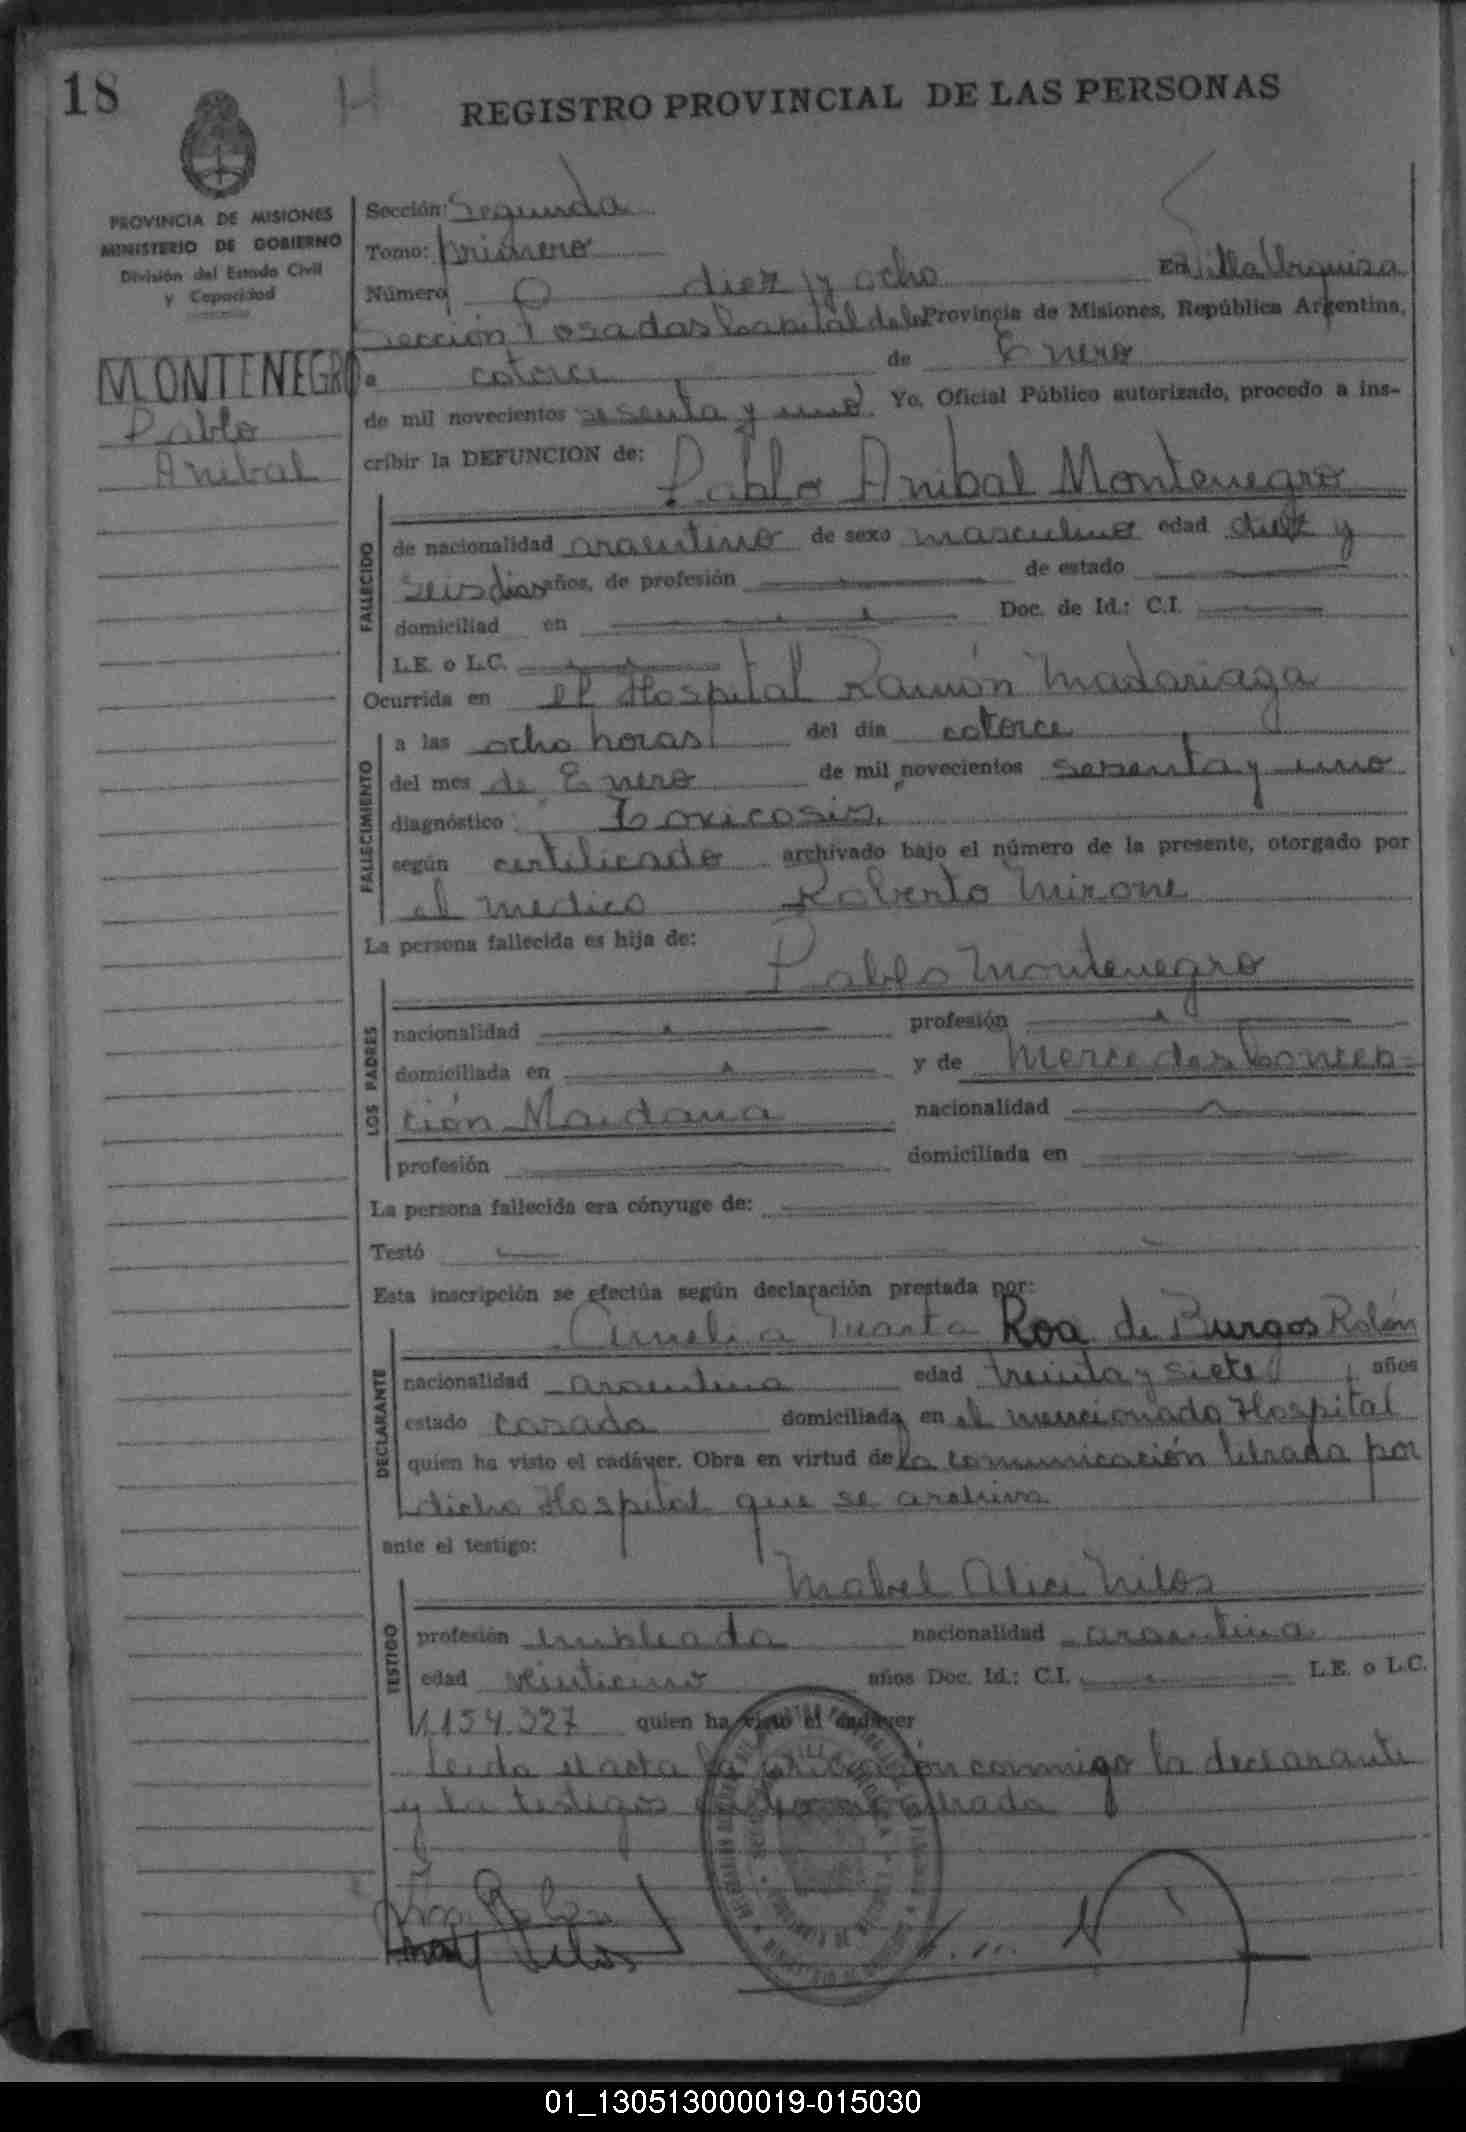 18
H
REGISTRO PROVINCIAL DE LAS PERSONAS
PROVINCIA DE MISIONES
MINISTERIO DE GOBIERNO
División del Estado Civil
y Capacidad
MONTENEGRO
Pablo
Anibal
Sección: Segunda
Tomo: primero
Número diez y ocho En Villa Urquiza
Sección Posadas Capital de la Provincia de Misiones, República Argentina,
a catorce de Enero
de mil novecientos sesenta y uno. Yo, Oficial Público autorizado, procedo a ins-
cribir la DEFUNCION de: Pablo Anibal Montenegro
FALLECIDO
de nacionalidad argentino de sexo masculino edad diez y
seis dias años, de profesión de estado
domiciliad en Doc. de Id.: C.I.
L.E. o L.C.
Ocurrida en el Hospital Ramón Madariaga
FALLECIMIENTO
a las ocho horas del día catorce
del mes de Enero de mil novecientos sesenta y uno
diagnóstico Toxicosis.
según certificado archivado bajo el número de la presente, otorgado por
el medico Roberto Mirone
La persona fallecida es hija de:
Pablo Montenegro
LOS PADRES
nacionalidad profesión
domiciliada en y de Mercedes Concep-
ción Maidana nacionalidad
profesión domiciliada en
La persona fallecida era cónyuge de:
Testó
Esta inscripción se efectúa según declaración prestada por:
Amelia Marta Roa de Burgos Rolón
DECLARANTE
nacionalidad argentina edad treinta y siete años
estado casada domiciliada en el mencionado Hospital
quien ha visto el cadáver. Obra en virtud de la comunicación librada por
dicho Hospital que se archiva
ante el testigo:
Mabel Alice Milos
TESTIGO
profesión empleada nacionalidad argentina
edad veintiuno años Doc. Id.: C.I. L.E. o L.C.
1.154.327 quien ha visto el cadáver
Leida el acta la conmigo la declarante
y la testigos
01_130513000019-015030